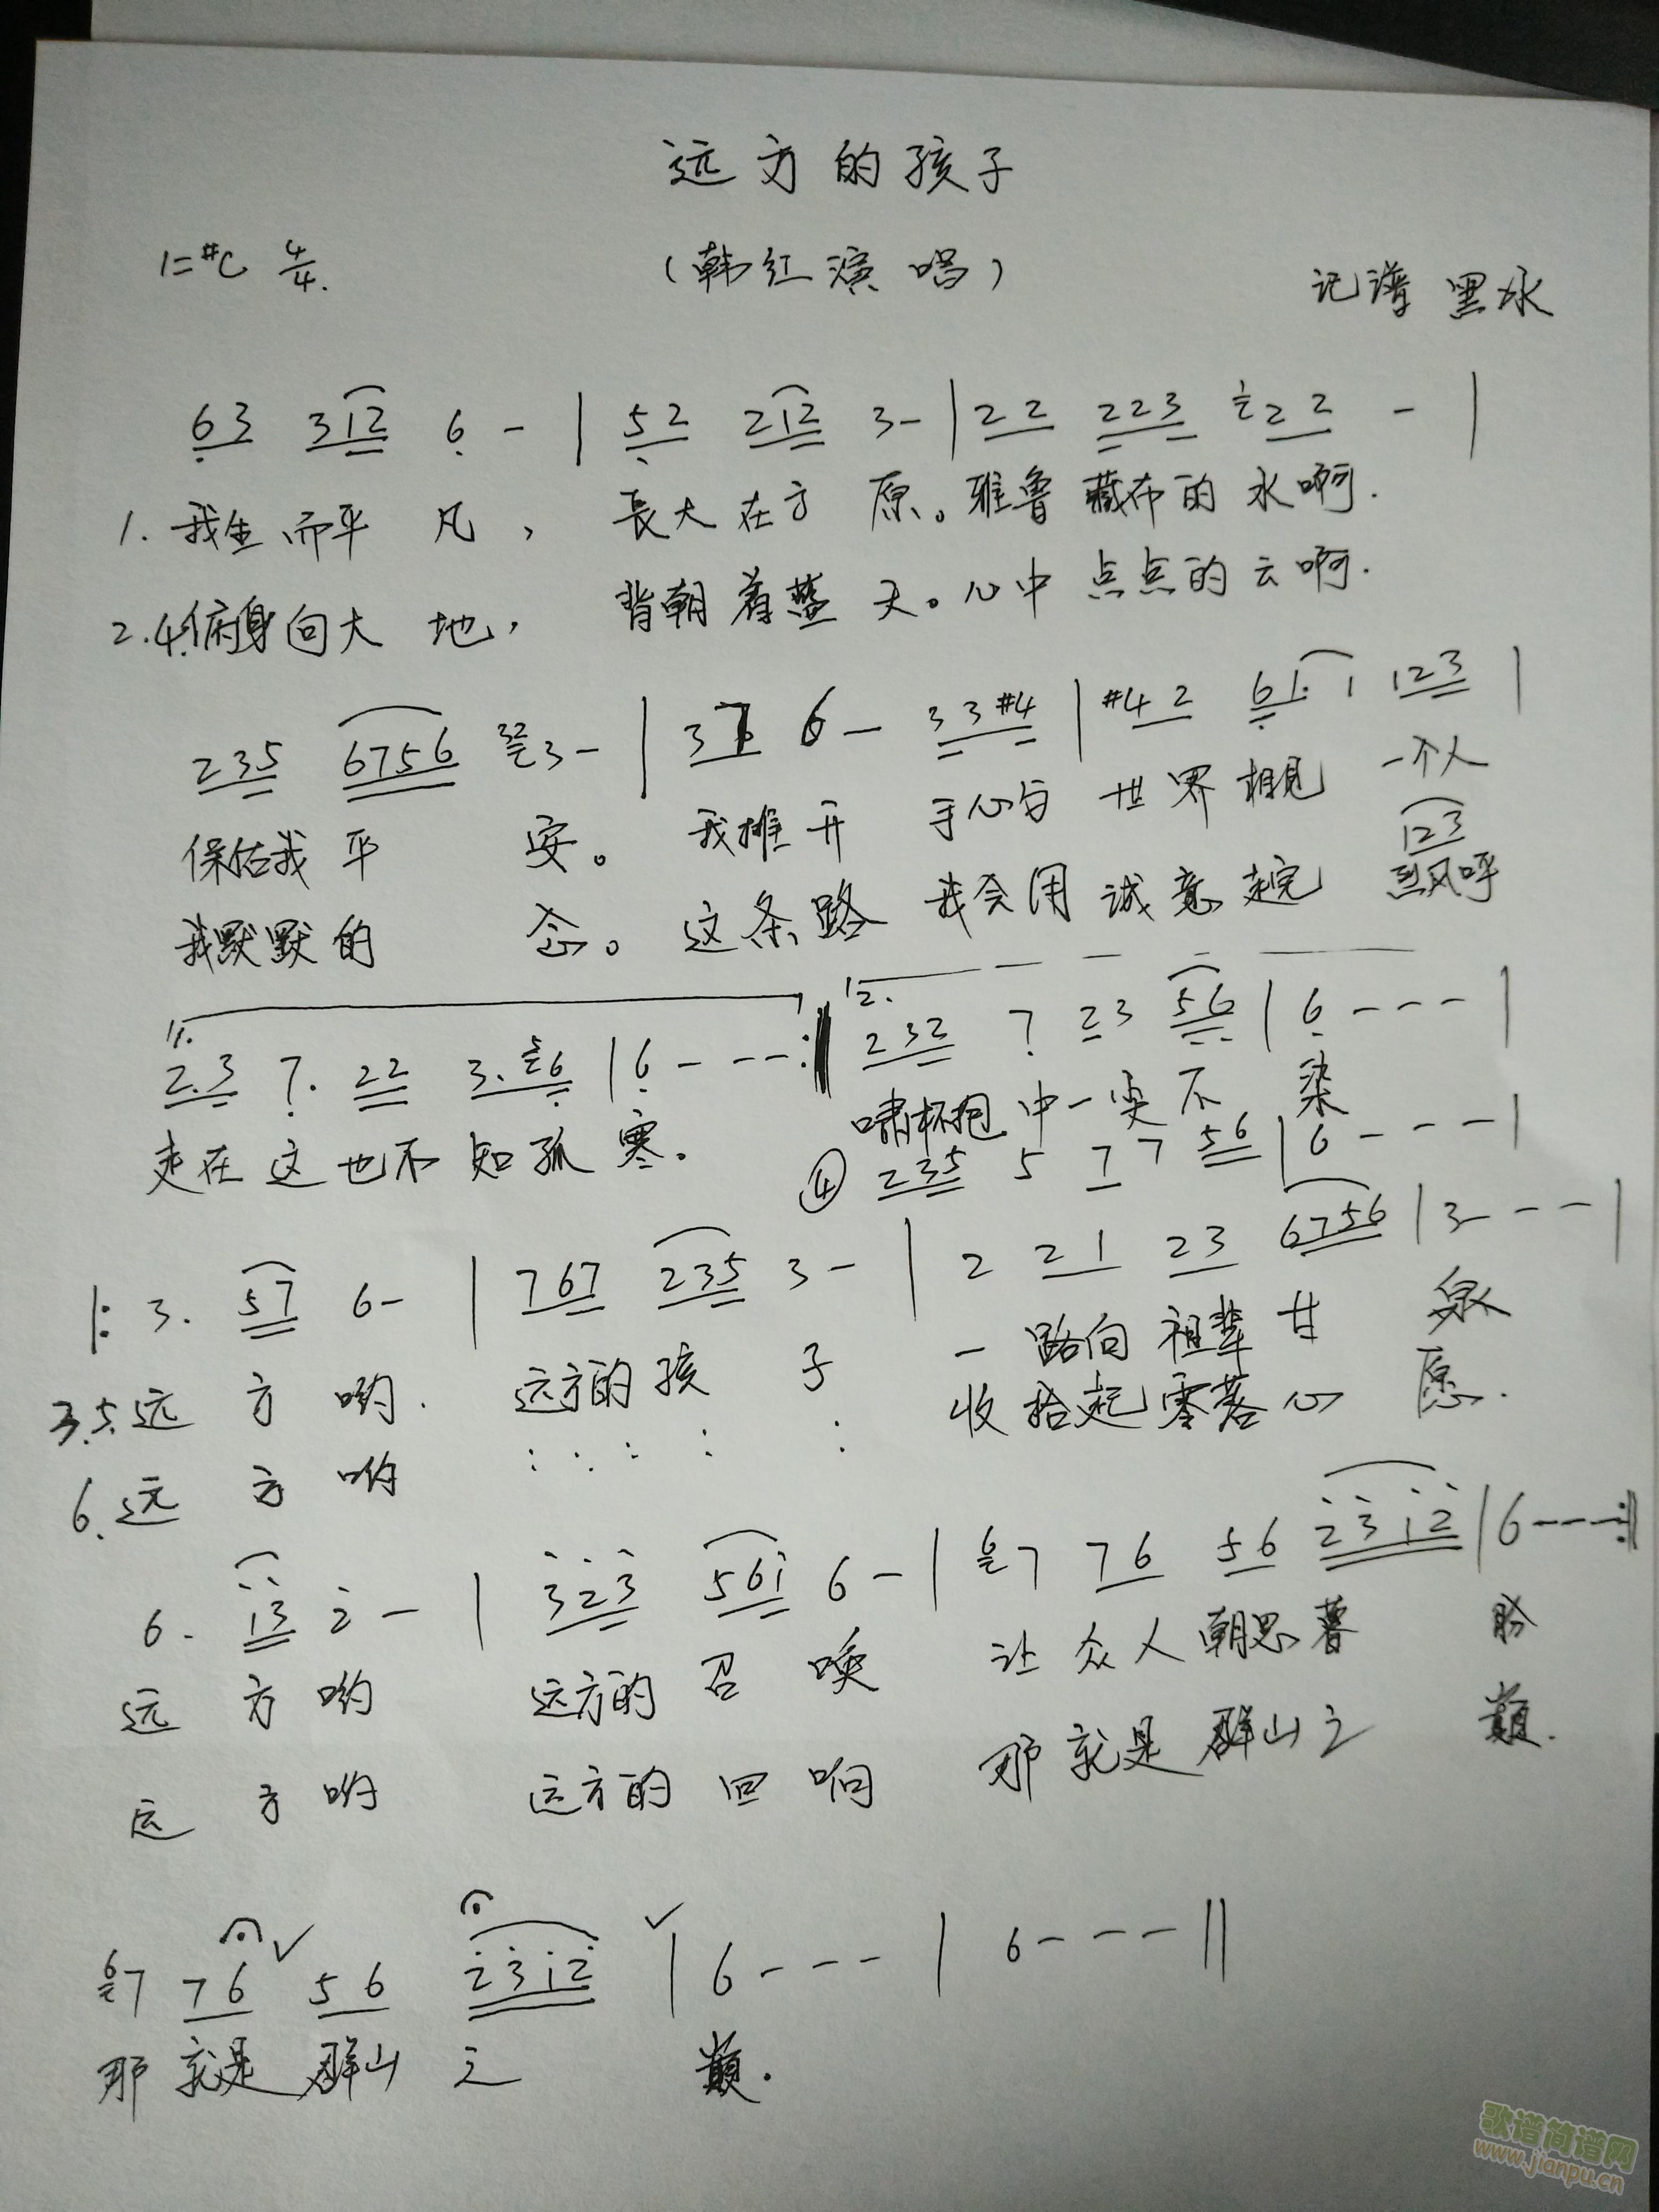 远方的孩子
1=#C 4/4
(韩红演唱)
记谱 黑冰
63 312 6 - | 52 212 3 - | 22 223 122 - |
1. 我生而平 凡, 長大在方 原。雅鲁藏布的水啊.
2.4.俯身向大 地, 背朝着蓝 天。心中点点的云啊.
235 6756 323 - | 37 6 - 33#4 | #42 61. 1 123 |
保佑我平 安。 我推开 手心与 世界相见 一个人
123
我默默的 念。 这条路 我会用 诚意走完 烈风呼
1. 2.3 7. 22 3. 56 | 6 - - - :‖ 2. 232 7 23 56 | 6 - - - |
走在这也不知孤寒。 啸怀抱中一尘不 染
④ 235 5 7 7 56 | 6 - - - |
|: 3. 57 6 - | 767 235 3 - | 2 21 23 6756 | 3 - - - |
3.5.远 方 哟. 远方的孩 子 一路向祖辈甘 泉
6.远 方 哟 收拾起零落心 愿.
6. 13 2 - | 323 561 6 - | 67 76 56 2312 | 6 - - - :‖
远 方 哟 远方的召 唤 让众人朝思暮 盼
远 方 哟 远方的回 响 那就是群山之 巅.
67 76 56 2312 | 6 - - - | 6 - - - ‖
那就是群山之 巅.
歌谱简谱网
www.jianpu.cn